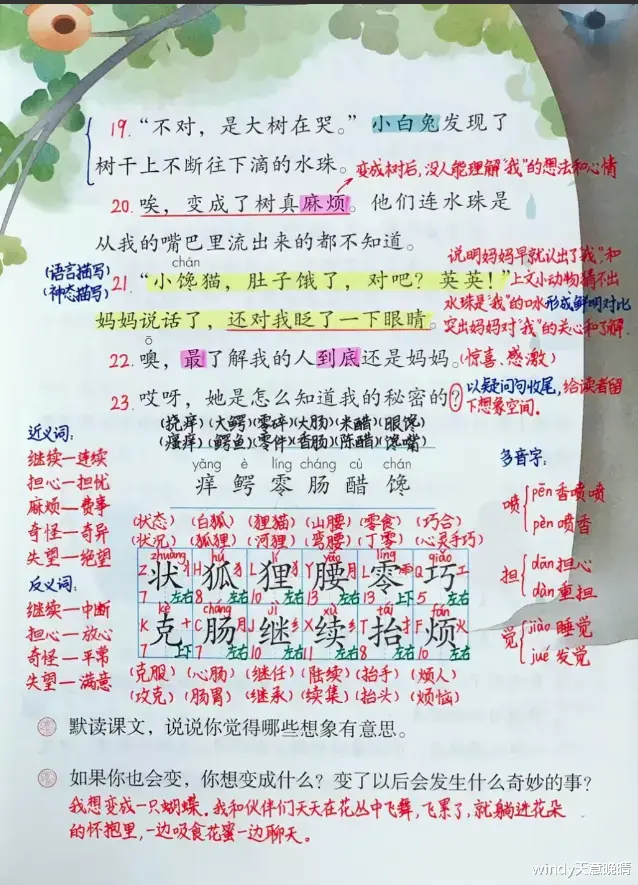 19. “不对，是大树在哭。”小白兔发现了
树干上不断往下滴的水珠。
变成树后，没人能理解“我”的想法和心情
20. 唉，变成了树真麻烦。他们连水珠是
从我的嘴巴里流出来的都不知道。
chán
(语言描写)
(神态描写)
21 “小馋猫，肚子饿了，对吧？英英！”
妈妈说话了，还对我眨了一下眼睛。
说明妈妈早就认出了“我”和
上文小动物猜不出
水珠是“我”的口水形成鲜明对比
突出妈妈对“我”的关心和了解.
ō
22. 噢，最了解我的人到底还是妈妈。(惊喜、感激)
23. 哎呀，她是怎么知道我的秘密的？
以疑问句收尾，给读者留
下想象空间。
(挠痒)(大鳄)(零碎)(大肠)(米醋)(眼馋)
(瘙痒)(鳄鱼)(零件)(香肠)(陈醋)(馋嘴)
yǎng è líng cháng cù chán
痒 鳄 零 肠 醋 馋
近义词:
继续—连续
担心—担忧
麻烦—费事
奇怪—奇异
失望—绝望
反义词:
继续—中断
担心—放心
奇怪—平常
失望—满意
(状态)(白狐)(狸猫)(山腰)(零食)(巧合)
(状况)(狐狸)(河狸)(弯腰)(丁零)(心灵手巧)
zhuàng hú lí yāo líng qiǎo
状 狐 狸 腰 零 巧
7 左右 8 左右 10 左右 13 左右 13 上下 5 左右
kè cháng jì xù tái fán
克 肠 继 续 抬 烦
7 上下 7 左右 10 左右 11 左右 8 左右 10 左右
(克服)(心肠)(继任)(陆续)(抬手)(烦人)
(攻克)(肠胃)(继承)(续集)(抬头)(烦恼)
多音字:
喷
pēn 香喷喷
pèn 喷香
担
dān 担心
dàn 重担
觉
jiào 睡觉
jué 发觉
默读课文，说说你觉得哪些想象有意思。
如果你也会变，你想变成什么？变了以后会发生什么奇妙的事？
我想变成一只蝴蝶. 我和伙伴们天天在花丛中飞舞，飞累了，就躺进花朵
的怀抱里，一边吸食花蜜一边聊天。
windy天意晚晴